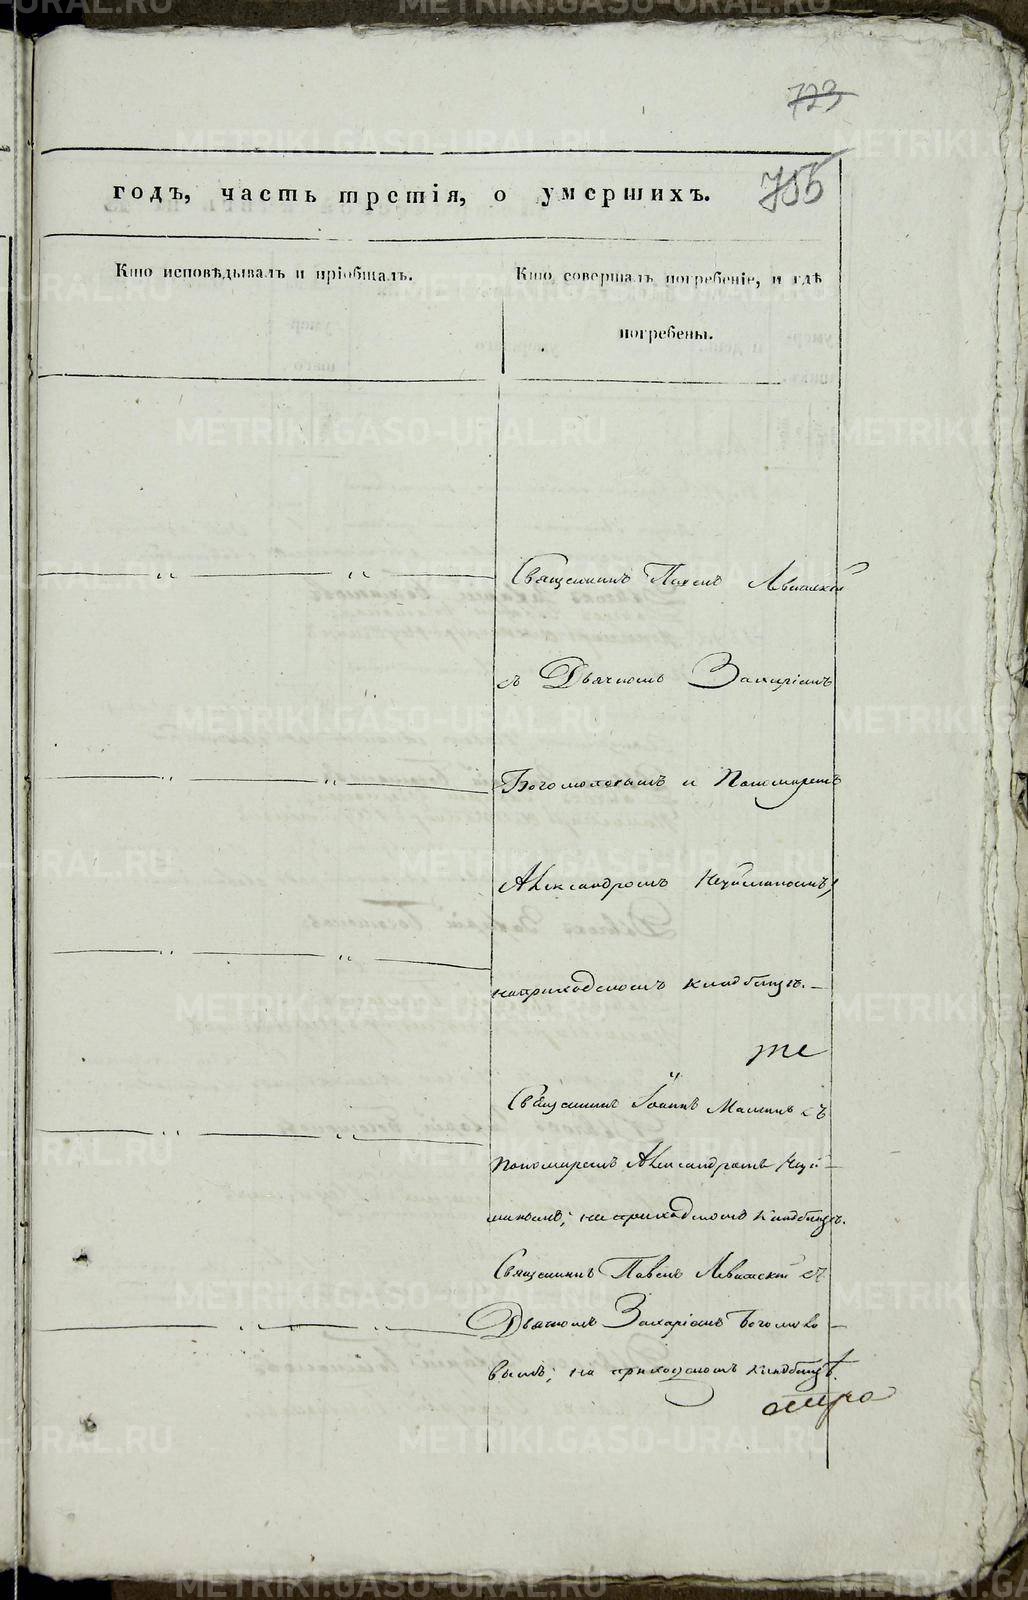 723
годъ, часть третія, о умершихъ.
755
Кто исповѣдывалъ и пріобщалъ.
Кто совершалъ погребеніе, и гдѣ
погребены.
Священникъ Павелъ Левитскій
съ Дьячкомъ Захаріемъ
Богомоловымъ и Пономаремъ
Александромъ
на приходскомъ кладбищѣ.
те
Священникъ Іоаннъ Маминъ съ
Пономаремъ Александромъ
на приходскомъ кладбищѣ.
Священникъ Павелъ Левитскій съ
Дьячкомъ Захаріемъ Богомоло
вымъ; на приходскомъ кладбищѣ.
METRIKI.GASO-URAL.RU